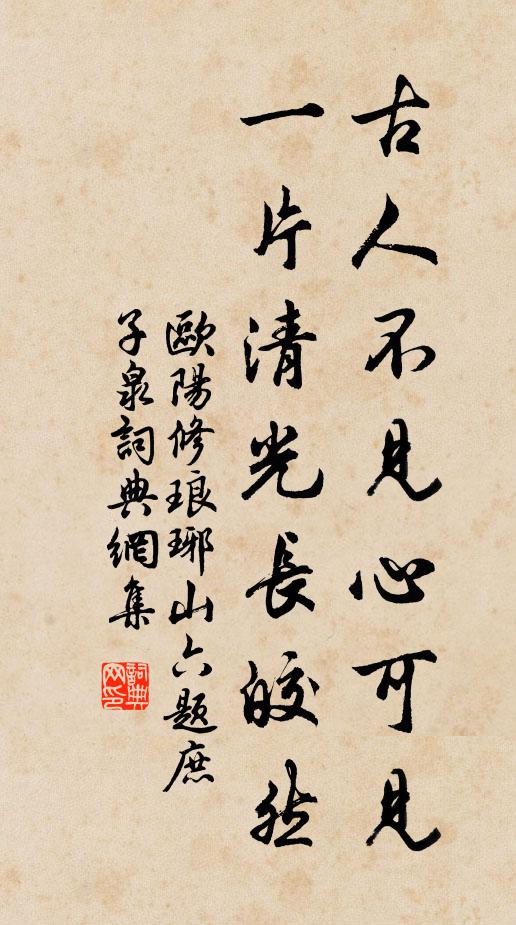 古人不見心可見
一片清光長皎然
歐陽修琅琊山六題庶
子泉詞典網集
詞典
网印